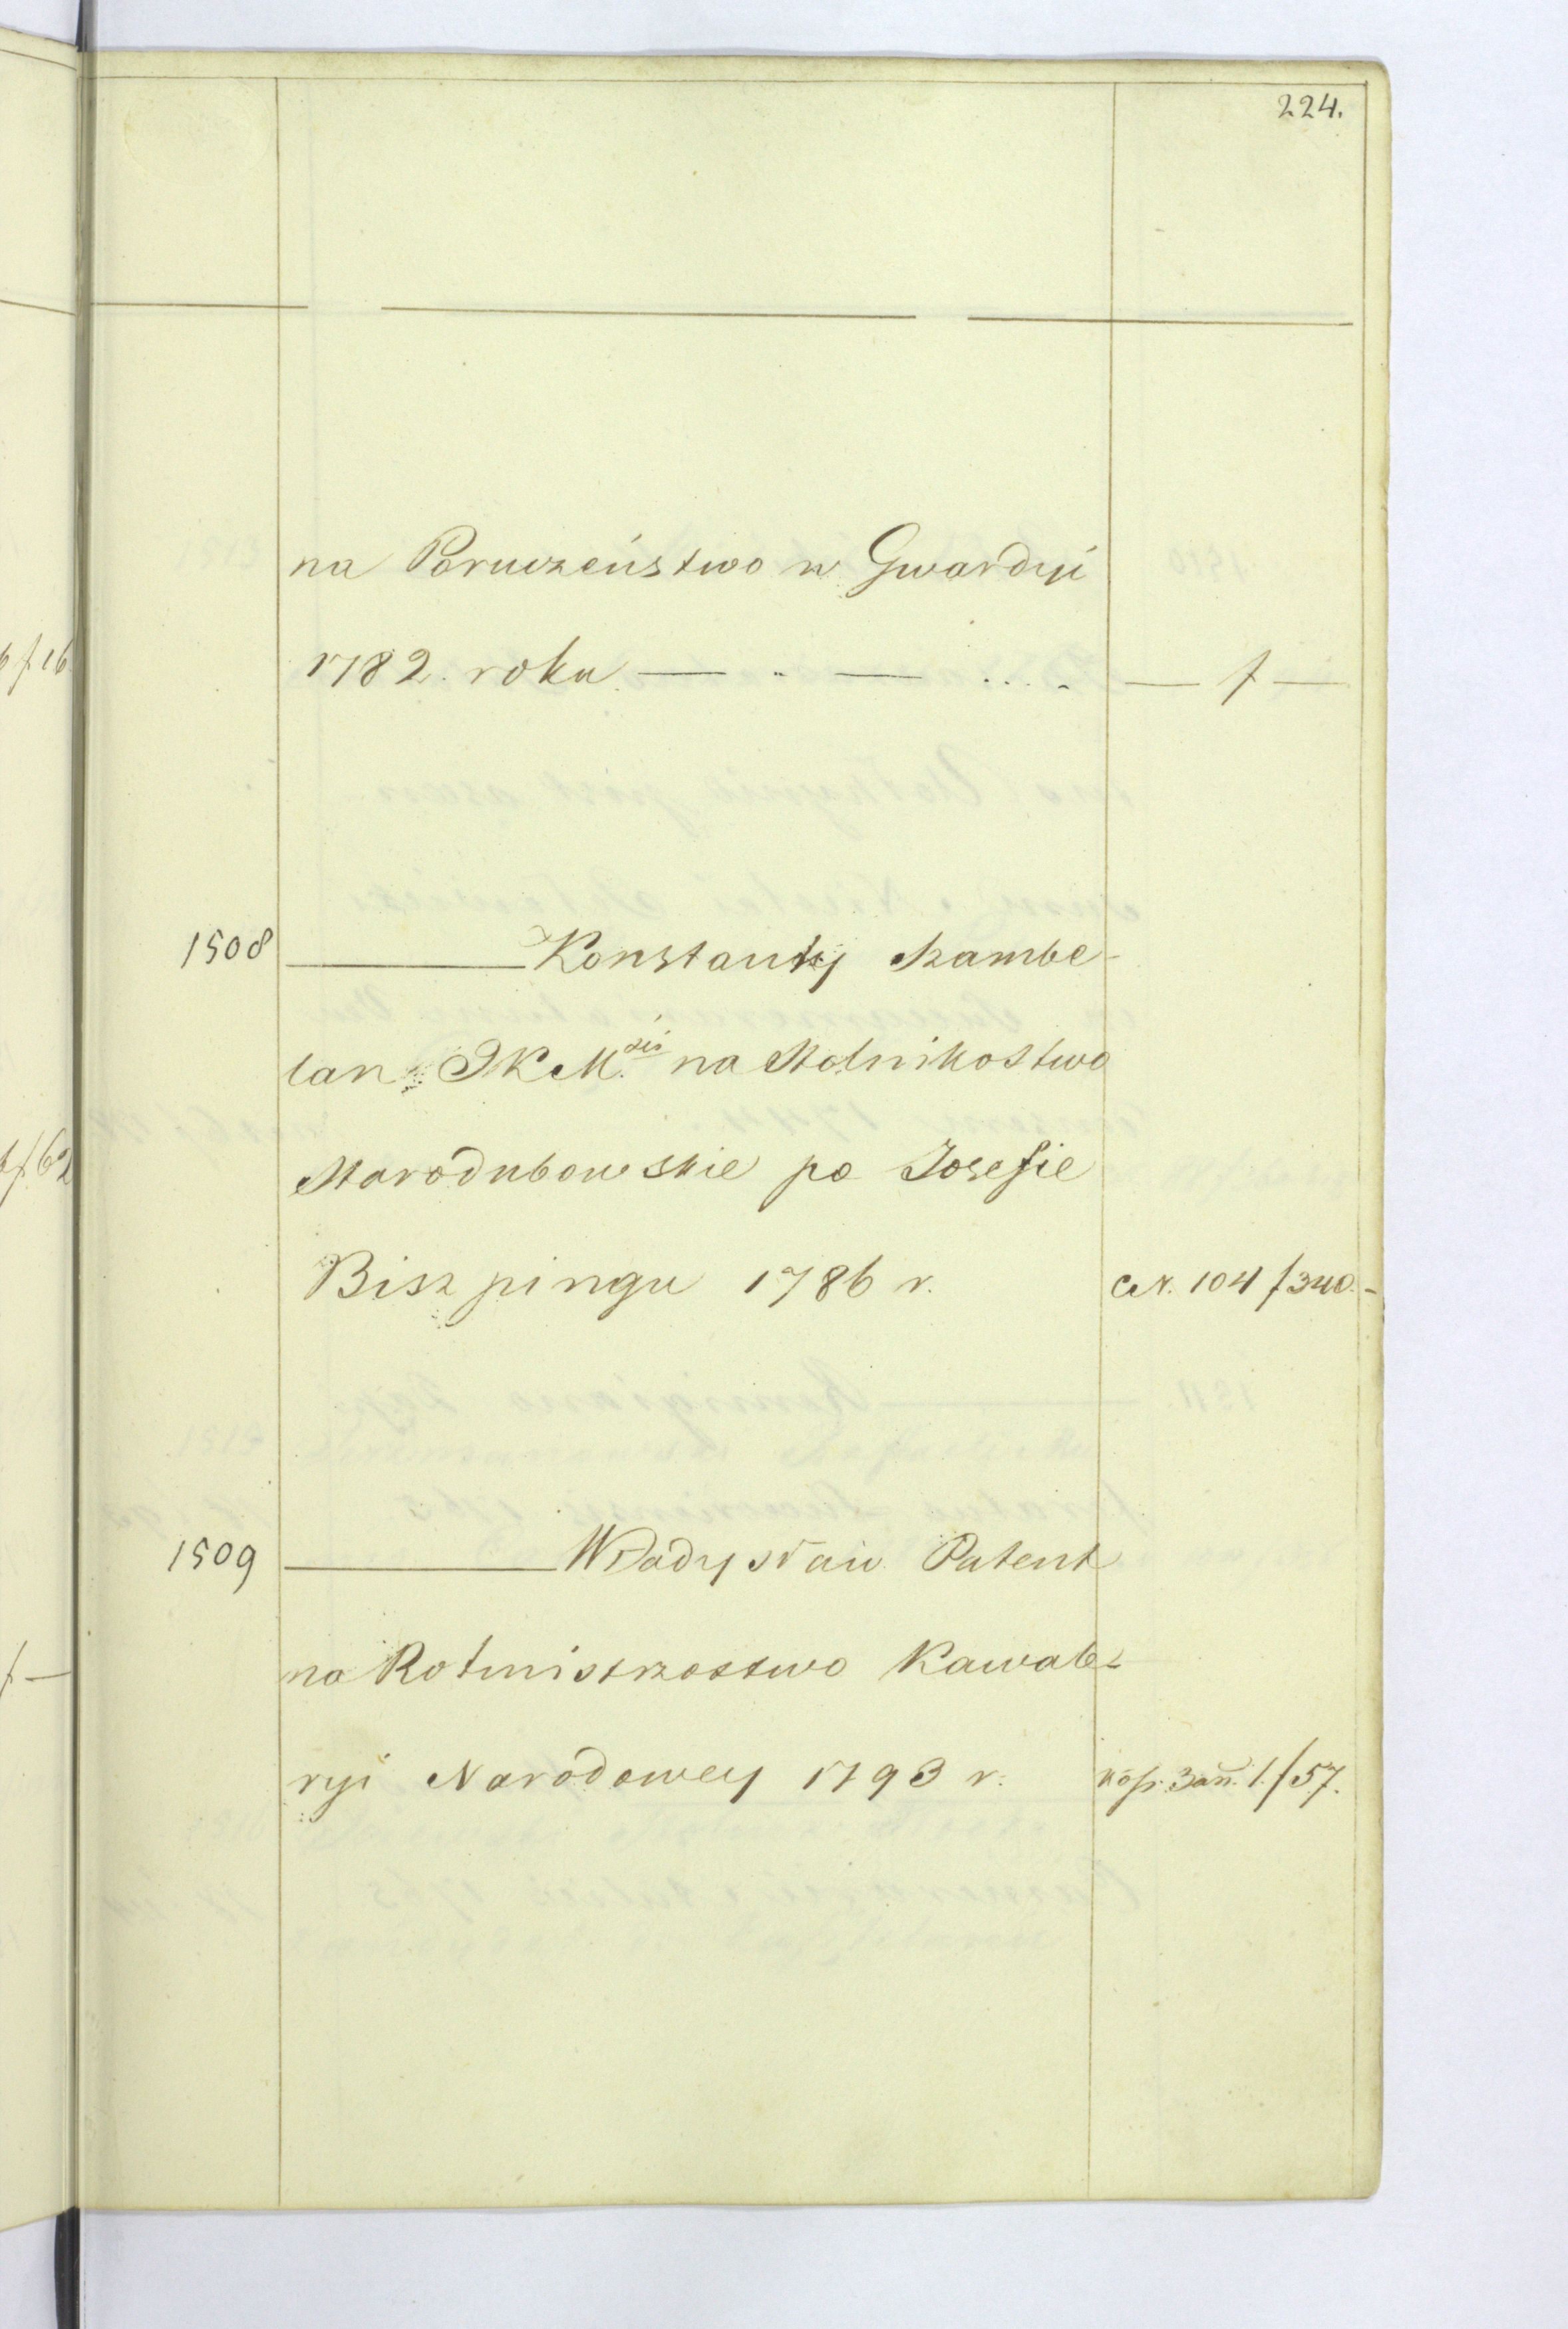 224.
na Poruczeństwo w Gwardyi
1782. roku — .. — .... — f —
1508 ——— Konstanty Szambe-
lan JKM.ści na Stolnikostwo
Starodubowskie po Josefie
Biszpingu 1786 r. 104 f 340.-
1509 ——— Władysław Patent
na Rotmistrzostwo Kawale-
ryi Narodowey 1793 r. 1. f 57.